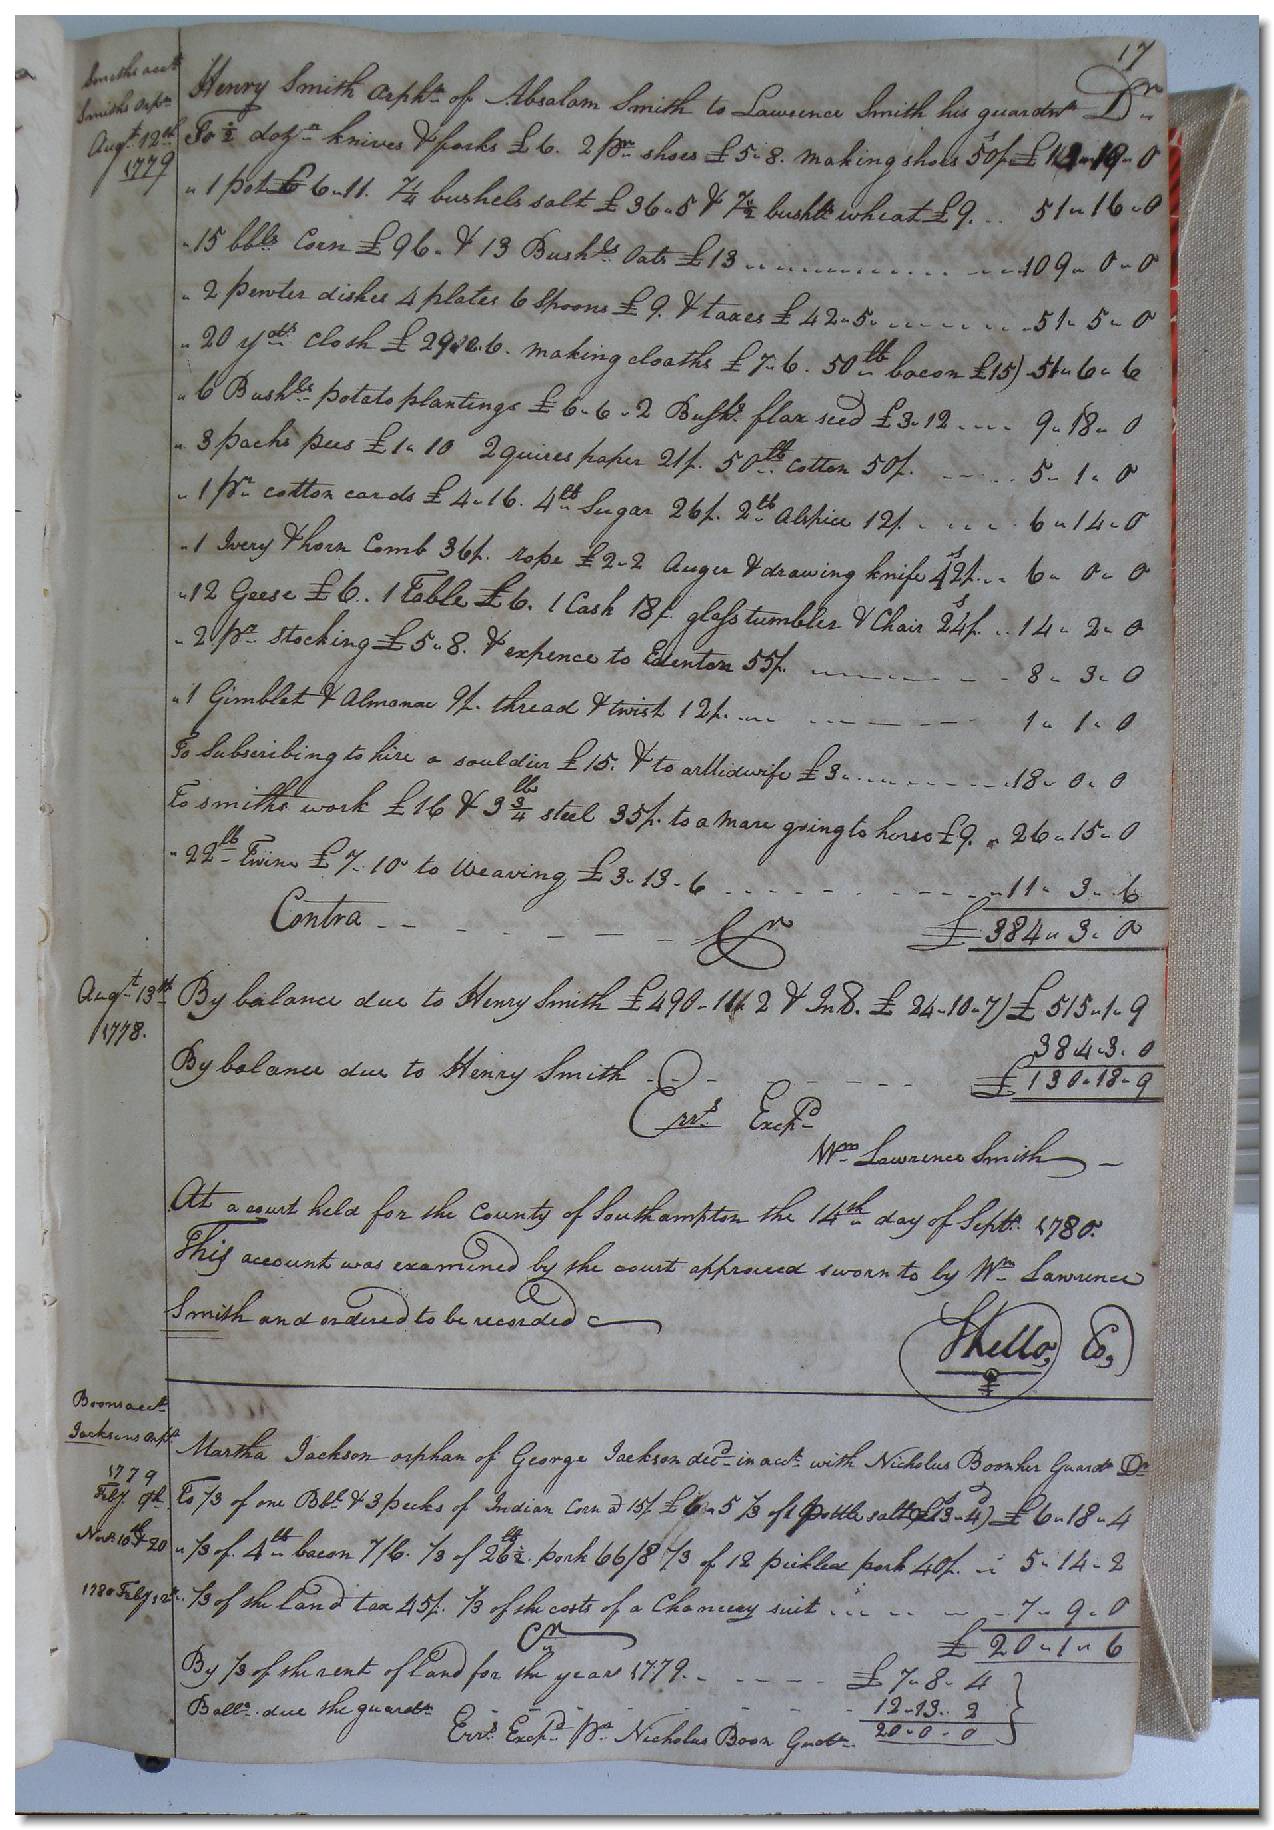 17
Smiths acct
Smiths Orpn
Augt 12th
1779
Henry Smith Orphn of Absalom Smith to Lawrence Smith his guardn Dr
To ½ dozn knives & forks £6. 2 pr shoes £5.8. making shoes 50/. £ 0
" 1 pot £6"11. 7¼ bushels salt £36"5 & 7½ bushls wheat £9... 51"16"0
"15 bbls Corn £96. & 13 Bushls Oats £13 ........ 109"0"0
" 2 pewter dishes 4 plates 6 Spoons £9. & taxes £42"5. ...... 51"5"0
" 20 yds Cloth £29 6. making cloaths £7"6. 50lb bacon £15) 51"6"6
" 6 Bushls potato plantings £6"6"2 Bushs flax seed £3"12 .... 9"18"0
" 3 packs pees £1"10 2 quires paper 21/. 50lb Cotton 50/. ..... 5"1"0
" 1 pr cotton cards £4"16. 4lb Sugar 26/. 2lb Alspice 12/. .... 6"14"0
"1 Ivery & horn Comb 36/. rope £2"2 Auger & drawing knife 42/... 6"0"0
"12 Geese £6.. 1 Table £6. 1 Cask 18/. glass tumbler & Chair 24/. .. 14"2"0
" 2 pr stocking £5"8. & expence to Edenton 55/. ..... 8"3"0
"1 Gimblet & Almanac 9/. thread & twist 12/. ... ..... 1"1"0
To Subscribing to hire a souldier £15. & to a Midwife £3 ........ 18"0"0
To smiths work £16 & 3¾lb steel 35/. to a mare going to horse £9. " 26"15"0
" 22lb Twine £7"10 to Weaving £3"13"6 ........ 11"3"6
Contra ........ Cr £384"3"0
Augt 13th
1778.
By balance due to Henry Smith £490"11 2 & Int. £24"10"7) £515"1"9
384"3"0
By balance due to Henry Smith ........ £130"18"9
Errs Excpd
Wm Lawrence Smith
At a court held for the County of Southampton the 14th day of Septr 1780.
This account was examined by the court approved sworn to by Wm Lawrence
Smith and ordered to be recorded
Co,
Boons acct
Jacksons orpn
Martha Jackson orphan of George Jackson decd in acct with Nicholas Boon her Guardn Dr
1779
Feby 9th
To ⅓ of one Bbl & 3 pecks of Indian Corn @ 15/. £6"5 ⅓ of 1 pottle salt 13"4) £6"18"4
Novr 10th & 20
" ⅓ of 4lb bacon 7/6. ⅓ of 26½lb pork 66/8 ⅓ of 12 pickled pork 40/. .. 5"14"2
1780 Feby
" ⅓ of the land tax 45/. ⅓ of the costs of a Chancery suit ........ 7"9"0
Cr £20"1"6
By ⅓ of the rent of land for the year 1779. ..... £7"8"4
Balla due the guardn ..... 12"13"2
20"0"0
Errs Excpd pr Nicholas Boon Guadn